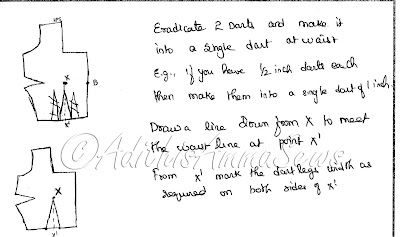 Eradicate 2 Darts and make it
into a single dart at waist
E.g., if you have 1/2 inch darts each
then make them into a single dart of 1 inch.
Draw a line down from X to meet
the waist line at point x'
From x' mark the dart legs width as
required on both sides of x'.
X
B
x'
X
x'
©AdithisAmmaSews